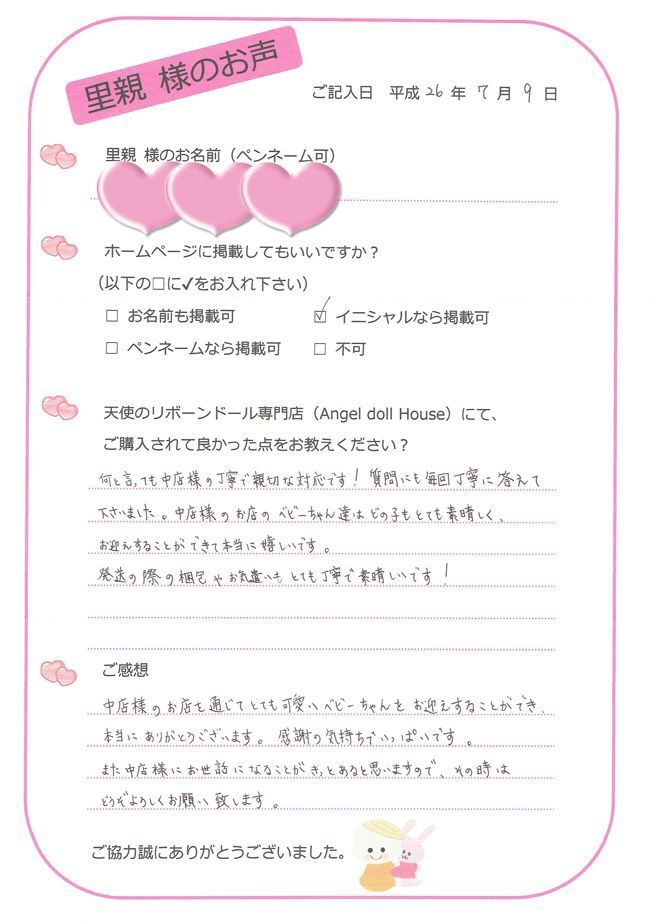 里親 様のお声
ご記入日 平成 26 年 7 月 9 日
里親 様のお名前（ペンネーム可）
ホームページに掲載してもいいですか？
（以下の□に✓をお入れ下さい）
□ お名前も掲載可 ☑ イニシャルなら掲載可
□ ペンネームなら掲載可 □ 不可
天使のリボーンドール専門店（Angel doll House）にて、
ご購入されて良かった点をお教えください？
何と言っても中店様の丁寧で親切な対応です！質問にも毎回丁寧に答えて
下さいました。中店様のお店のベビーちゃん達はどの子もとても素晴しく、
お迎えすることができて本当に嬉しいです。
発送の際の梱包やお気遣いもとても丁寧で素晴しいです！
ご感想
中店様のお店を通じてとても可愛いベビーちゃんをお迎えすることができ、
本当にありがとうございます。感謝の気持ちでいっぱいです。
また中店様にお世話になることがきっとあると思いますので、その時は
どうぞよろしくお願い致します。
ご協力誠にありがとうございました。